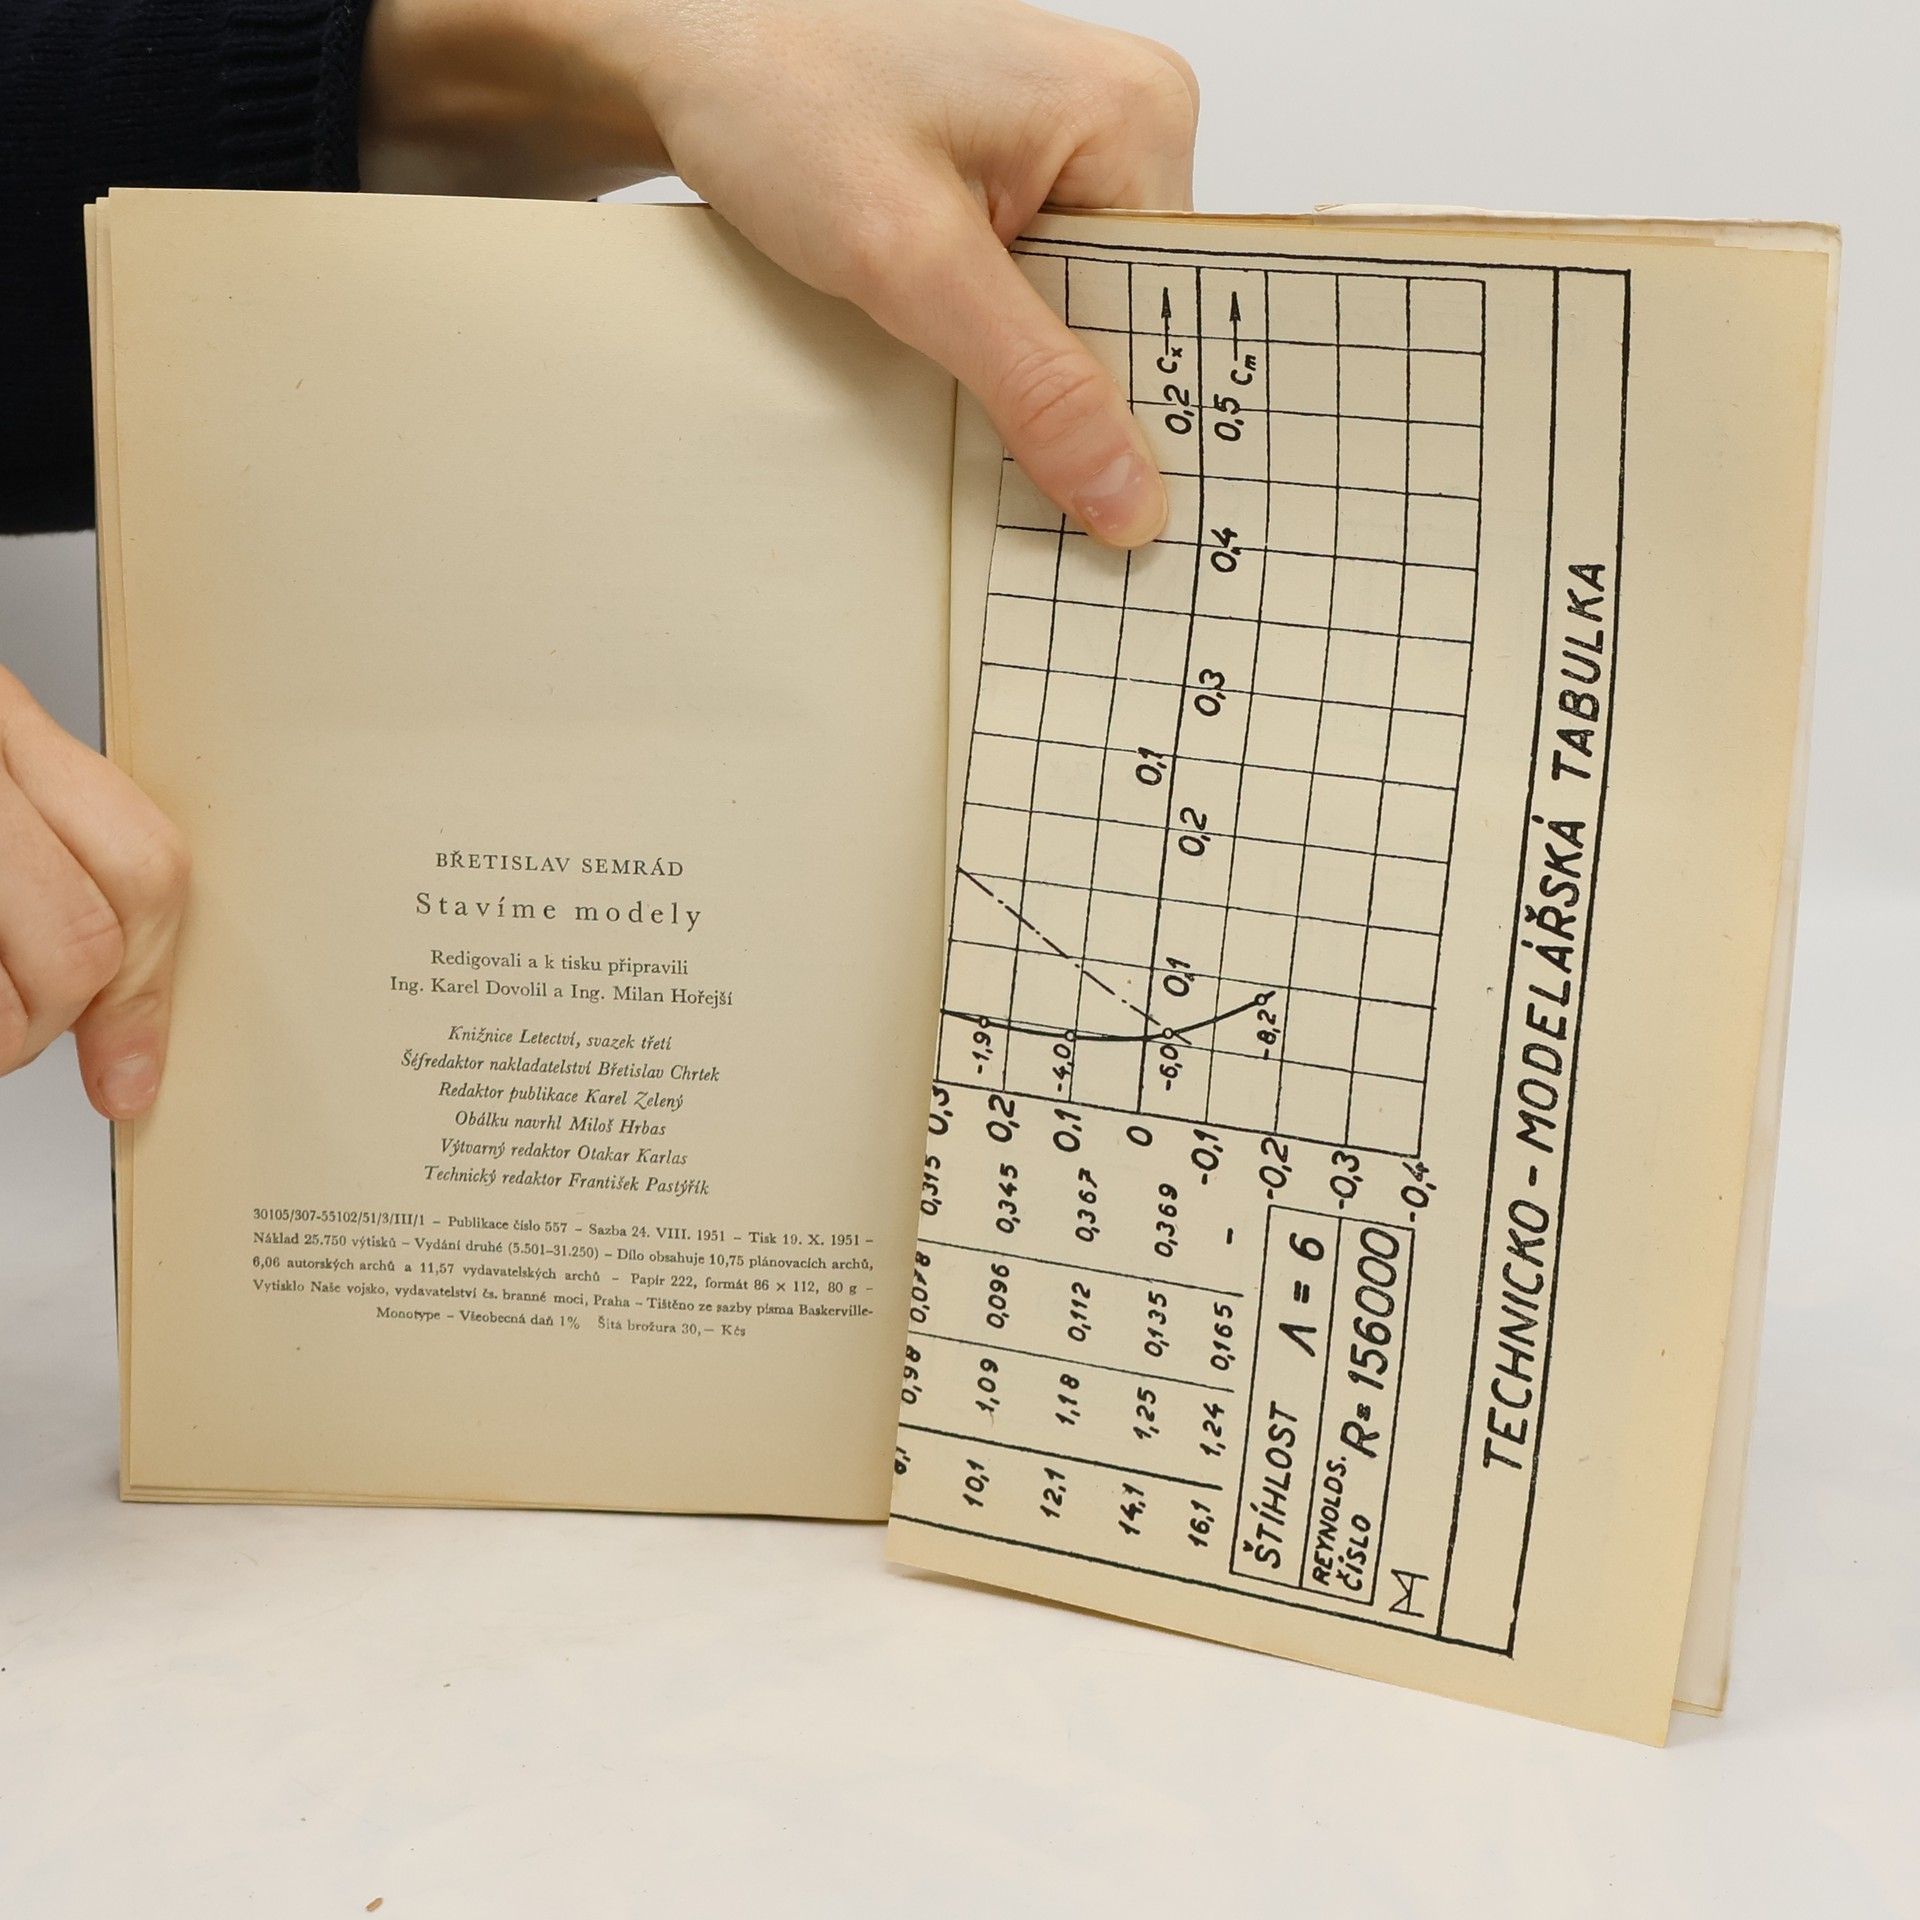 BŘETISLAV SEMRÁD
Stavíme modely
Redigovali a k tisku připravili
Ing. Karel Dovolil a Ing. Milan Hořejší
Knižnice Letectví, svazek třetí
Šéfredaktor nakladatelství Břetislav Chrtek
Redaktor publikace Karel Zelený
Obálku navrhl Miloš Hrbas
Výtvarný redaktor Otakar Karlas
Technický redaktor František Pastýřík
30105/307-55102/51/3/III/1 – Publikace číslo 557 – Sazba 24. VIII. 1951 – Tisk 19. X. 1951 –
Náklad 25.750 výtisků – Vydání druhé (5.501–31.250) – Dílo obsahuje 10,75 plánovacích archů,
6,06 autorských archů a 11,57 vydavatelských archů – Papír 222, formát 86 × 112, 80 g –
Vytisklo Naše vojsko, vydavatelství čs. branné moci, Praha – Tištěno ze sazby písma Baskerville-
Monotype – Všeobecná daň 1% Šitá brožura 30,– Kčs
0,98 0,078 0,315 0,3
10,1 1,09 0,096 0,345 0,2 -1,9
12,1 1,18 0,112 0,367 0,1 -4,0
14,1 1,25 0,135 0,369 0 -6,0
0,1 0,2 Cx
0,1 0,2 0,3 0,4 0,5 Cm
16,1 1,24 0,165 – -0,1
-8,2
-0,2
-0,3
-0,4
ŠTÍHLOST Λ = 6
REYNOLDS.
ČÍSLO R = 156000
TECHNICKO - MODELÁŘSKÁ TABULKA